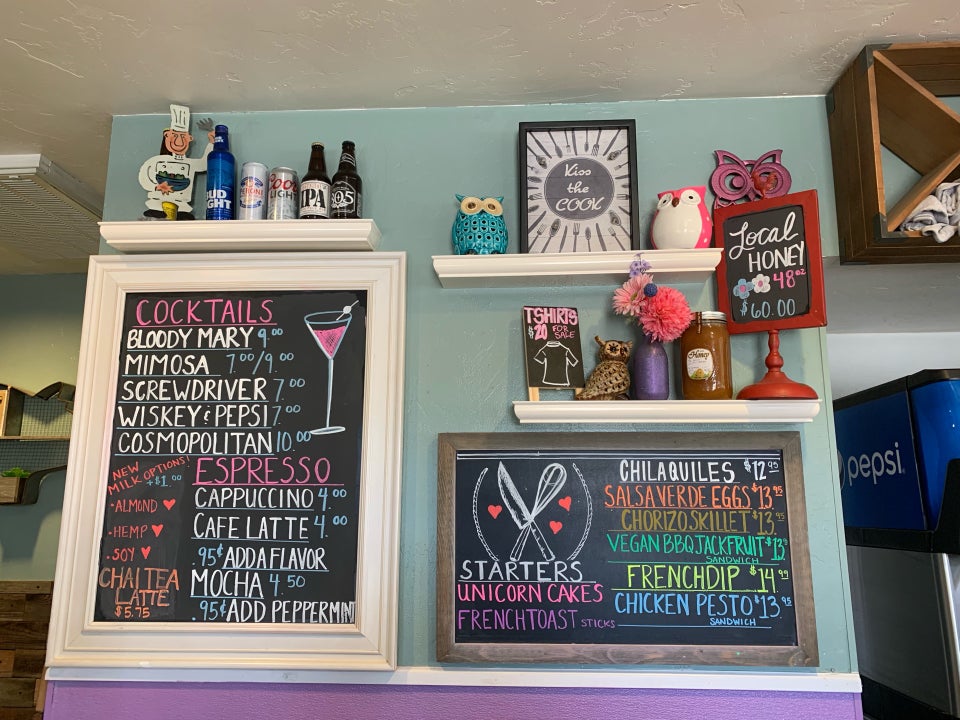 BUD
LIGHT
Coors
IPA
Kiss
the
COOK
Local
HONEY
48oz
$60.00
TSHIRTS
$20 FOR
SALE
Honey
pepsi
COCKTAILS
BLOODY MARY 9.00
MIMOSA 7.00/9.00
SCREWDRIVER 7.00
WISKEY & PEPSI 7.00
COSMOPOLITAN 10.00
NEW
MILK OPTIONS!
+$1.00
•ALMOND
•HEMP
•SOY
CHAI TEA
LATTE
$5.75
ESPRESSO
CAPPUCCINO 4.00
CAFE LATTE 4.00
.95¢ ADD A FLAVOR
MOCHA 4.50
.95¢ ADD PEPPERMINT
STARTERS
UNICORN CAKES
FRENCH TOAST STICKS
CHILAQUILES $12.95
SALSA VERDE EGGS $13.95
CHORIZO SKILLET $13.95
VEGAN BBQ JACKFRUIT $13.95
SANDWICH
FRENCH DIP $14.99
CHICKEN PESTO $13.95
SANDWICH